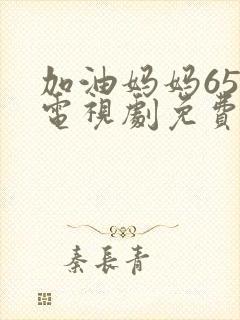 加油妈妈65
電視劇免費
秦長青